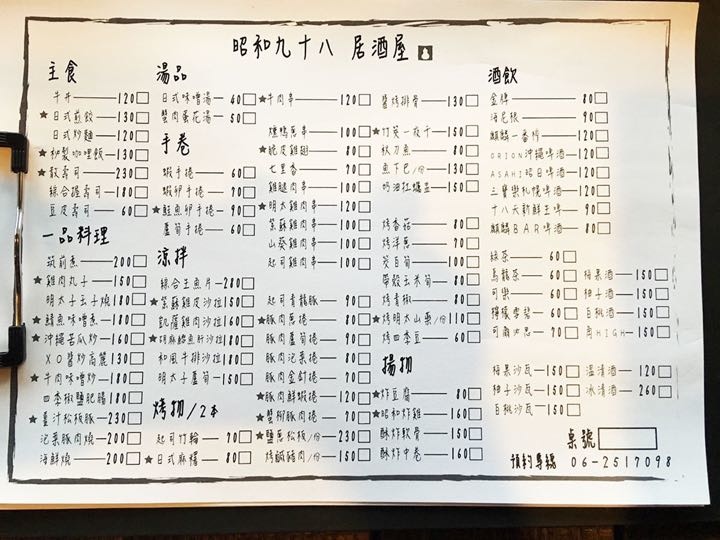 昭和九十八 居酒屋
主食
牛丼 120
★日式煎餃 130
日式炒麵 120
★秘製咖哩飯 130
★散壽司 230
綜合握壽司 180
豆皮壽司 60
一品料理
筑前煮 200
★雞肉丸子 150
明太子玉子燒 180
★鯖魚味噌煮 180
★沖繩苦瓜炒 160
XO醬炒高麗 130
★牛肉味噌炒 180
四季椒鹽肥腸 180
★薑汁松板豚 230
泡菜豚肉燒 200
海鮮燒 200
湯品
日式味噌湯 40
蟹肉蛋花湯 50
手卷
蝦手捲 60
蝦卵手捲 90
★鮭魚卵手捲 90
蘆筍手捲 60
涼拌
綜合生魚片 280
★紫蘇雞皮沙拉 150
凱薩雞肉沙拉 160
★胡麻鱈魚肝沙拉 180
和風牛排沙拉 180
明太子蘆筍 150
烤物/2本
起司竹輪 70
★日式麻糬 80
★牛肉串 120
燻鴨蔥串 100
★脆皮雞串 80
七里香 70
雞腿肉串 100
★明太雞肉串 120
紫蘇雞肉串 100
山葵雞肉串 100
起司雞肉串 100
起司青龍豚 90
★豚肉蔥捲 80
豚肉蘆筍捲 90
豚肉泡菜捲 80
豚肉金針捲 70
★豚肉鮮蝦捲 120
★蟹柳豚肉捲 70
★鹽蔥松板/份 230
烤鹹豬肉/份 150
醬烤排骨 130
★竹筴一夜干 150
秋刀魚 80
魚下巴/份 130
奶油扛爆盂 150
烤香菇 80
烤洋蔥 70
茭白筍 100
帶殼玉米筍 80
烤青椒 80
★烤明太山藥/份 110
烤四季豆 60
揚物
★炸豆腐 80
★昭和炸雞 160
酥炸軟骨 150
酥炸中卷 160
酒飲
金牌 80
海尼根 90
麒麟一番榨 120
ORION沖繩啤酒 120
ASAHI昭日啤酒 120
三寶樂札幌啤酒 120
十八天新鮮生啤 90
麒麟BAR啤酒 90
綠茶 60
烏龍茶 60
可樂 60
檸檬雪碧 60
可爾必思 70
梅果酒 150
柚子酒 150
白桃酒 150
角HIGH 150
梅果沙瓦 150
柚子沙瓦 150
白桃沙瓦 150
溫清酒 120
冰清酒 260
桌號
預約專線 06-2517098